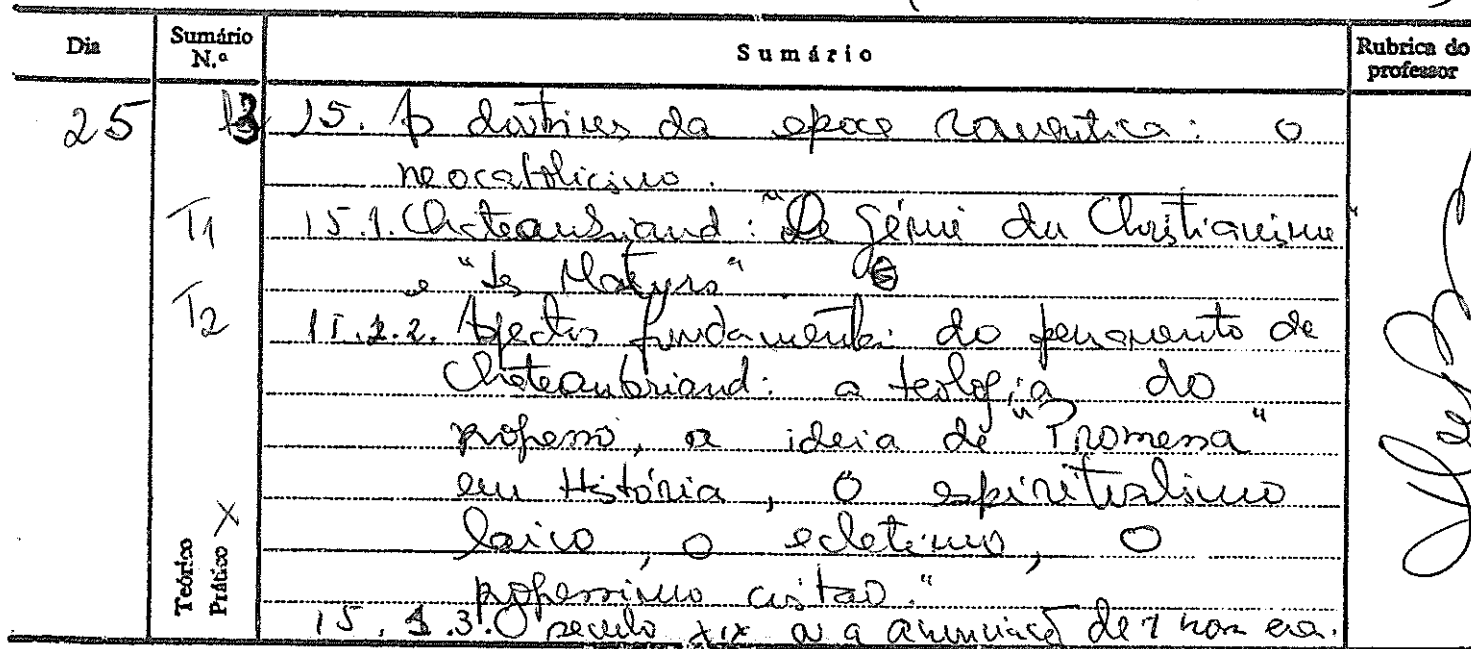 Dia Sumário N.º Sumário Rubrica do professor
25 13 15. As doutrinas da epoca romantica: o
neocatolicismo.
T1 15.1. Chateaubriand: "Le Génie du Christianisme"
e "Les Martyrs".
T2 Aspectos fundamentais do pensamento de
Chateaubriand: a teologia do
progresso, a ideia de "Promessa"
em História, o espiritualismo
laico, o ecletismo, o
progressismo cristão."
Teórico
Prático X
15.1.3. O seculo XIX ou a anunciação de 1 nova era.